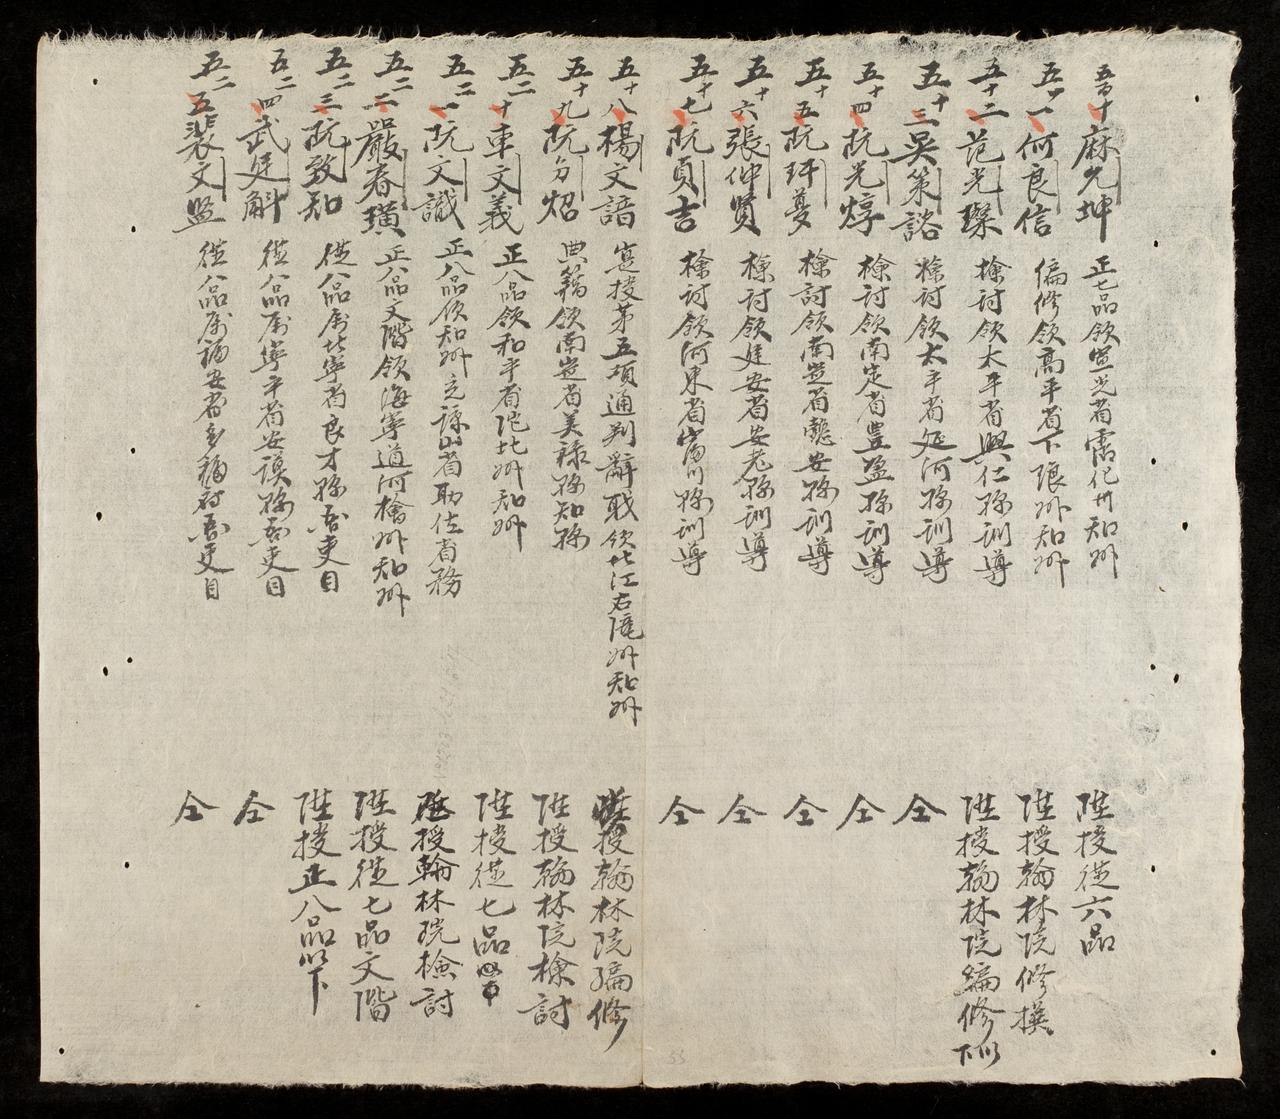 五百十 麻允坤 正七品領宣光省霑化州知州 陞授從六品
五百十一 何良信 編修領高平省下琅州知州 陞授翰林院修撰
五十二 范光璨 檢討領太平省興仁縣訓導 陞授翰林院編修以下
五十三 吳策諮 檢討領太平省延河縣訓導 仝
五十四 阮光焞 檢討領南定省豐盈縣訓導 仝
五十五 阮玶夢 檢討領南定省懿安縣訓導 仝
五十六 張仲賢 檢討領建安省安老縣訓導 仝
五十七 阮貞吉 檢討領河東省富川縣訓導 仝
五十八 楊文諳 寔授第五項通判辭職領北江右隴州知州 陞授翰林院編修
五十九 阮文炤 典籍領南定省美祿縣知縣 陞授翰林院檢討
五二十 車文義 正八品領和平省陀北州知州 陞授從七品
五二一 阮文識 正八品領知州充諒山省助佐省務 陞授翰林院檢討
五二二 嚴春璜 正八品文階領海寧道河檜州知州 陞授從七品文階
五二三 阮致知 從八品屬北寧省良才縣吏目 陞授正八品以下
五二四 武廷斛 從八品屬寧平省安謨縣吏目 仝
五二五 裴文監 從八品屬福安省多福府吏目 仝